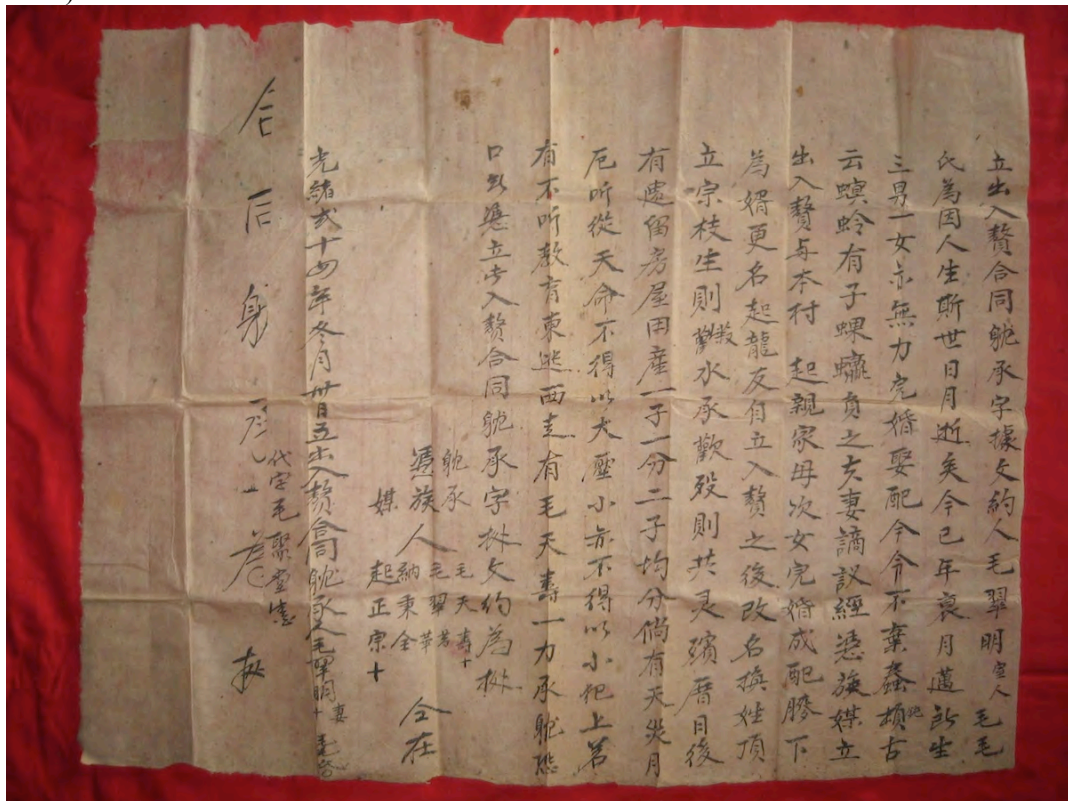 立出入贅合同舵承字據文約人毛翠明室人毛毛
氏為因人生斯世日月逝矣今已年衰月邁所生
三男一女亦無力完婚娶配今令不棄蠢頑古
云螟蛉有子蜾蠃負之夫妻謫議經憑族媒立
出入贅与本村 起親家母次女完婚成配膝下
為婿更名起龍友自立入贅之後改名換姓頂
立宗枝生則菽水承歡殁則共灵殯厝日後
有遺留房屋田產一子一分二子均分倘有天災月
厄听從天命不得以大壓小亦不得以小犯上若
有不听教育東逃西走有毛天壽一力承舵恐
口無憑立此入贅合同舵承字據文約為據
舵承 毛天壽十
憑族人 毛翠若 華
納秉全
媒 起正宗十
仝在
光緒弍十四年冬月卅日立出入贅合同舵承人毛翠明十 妻毛
代字毛聚堂
合后